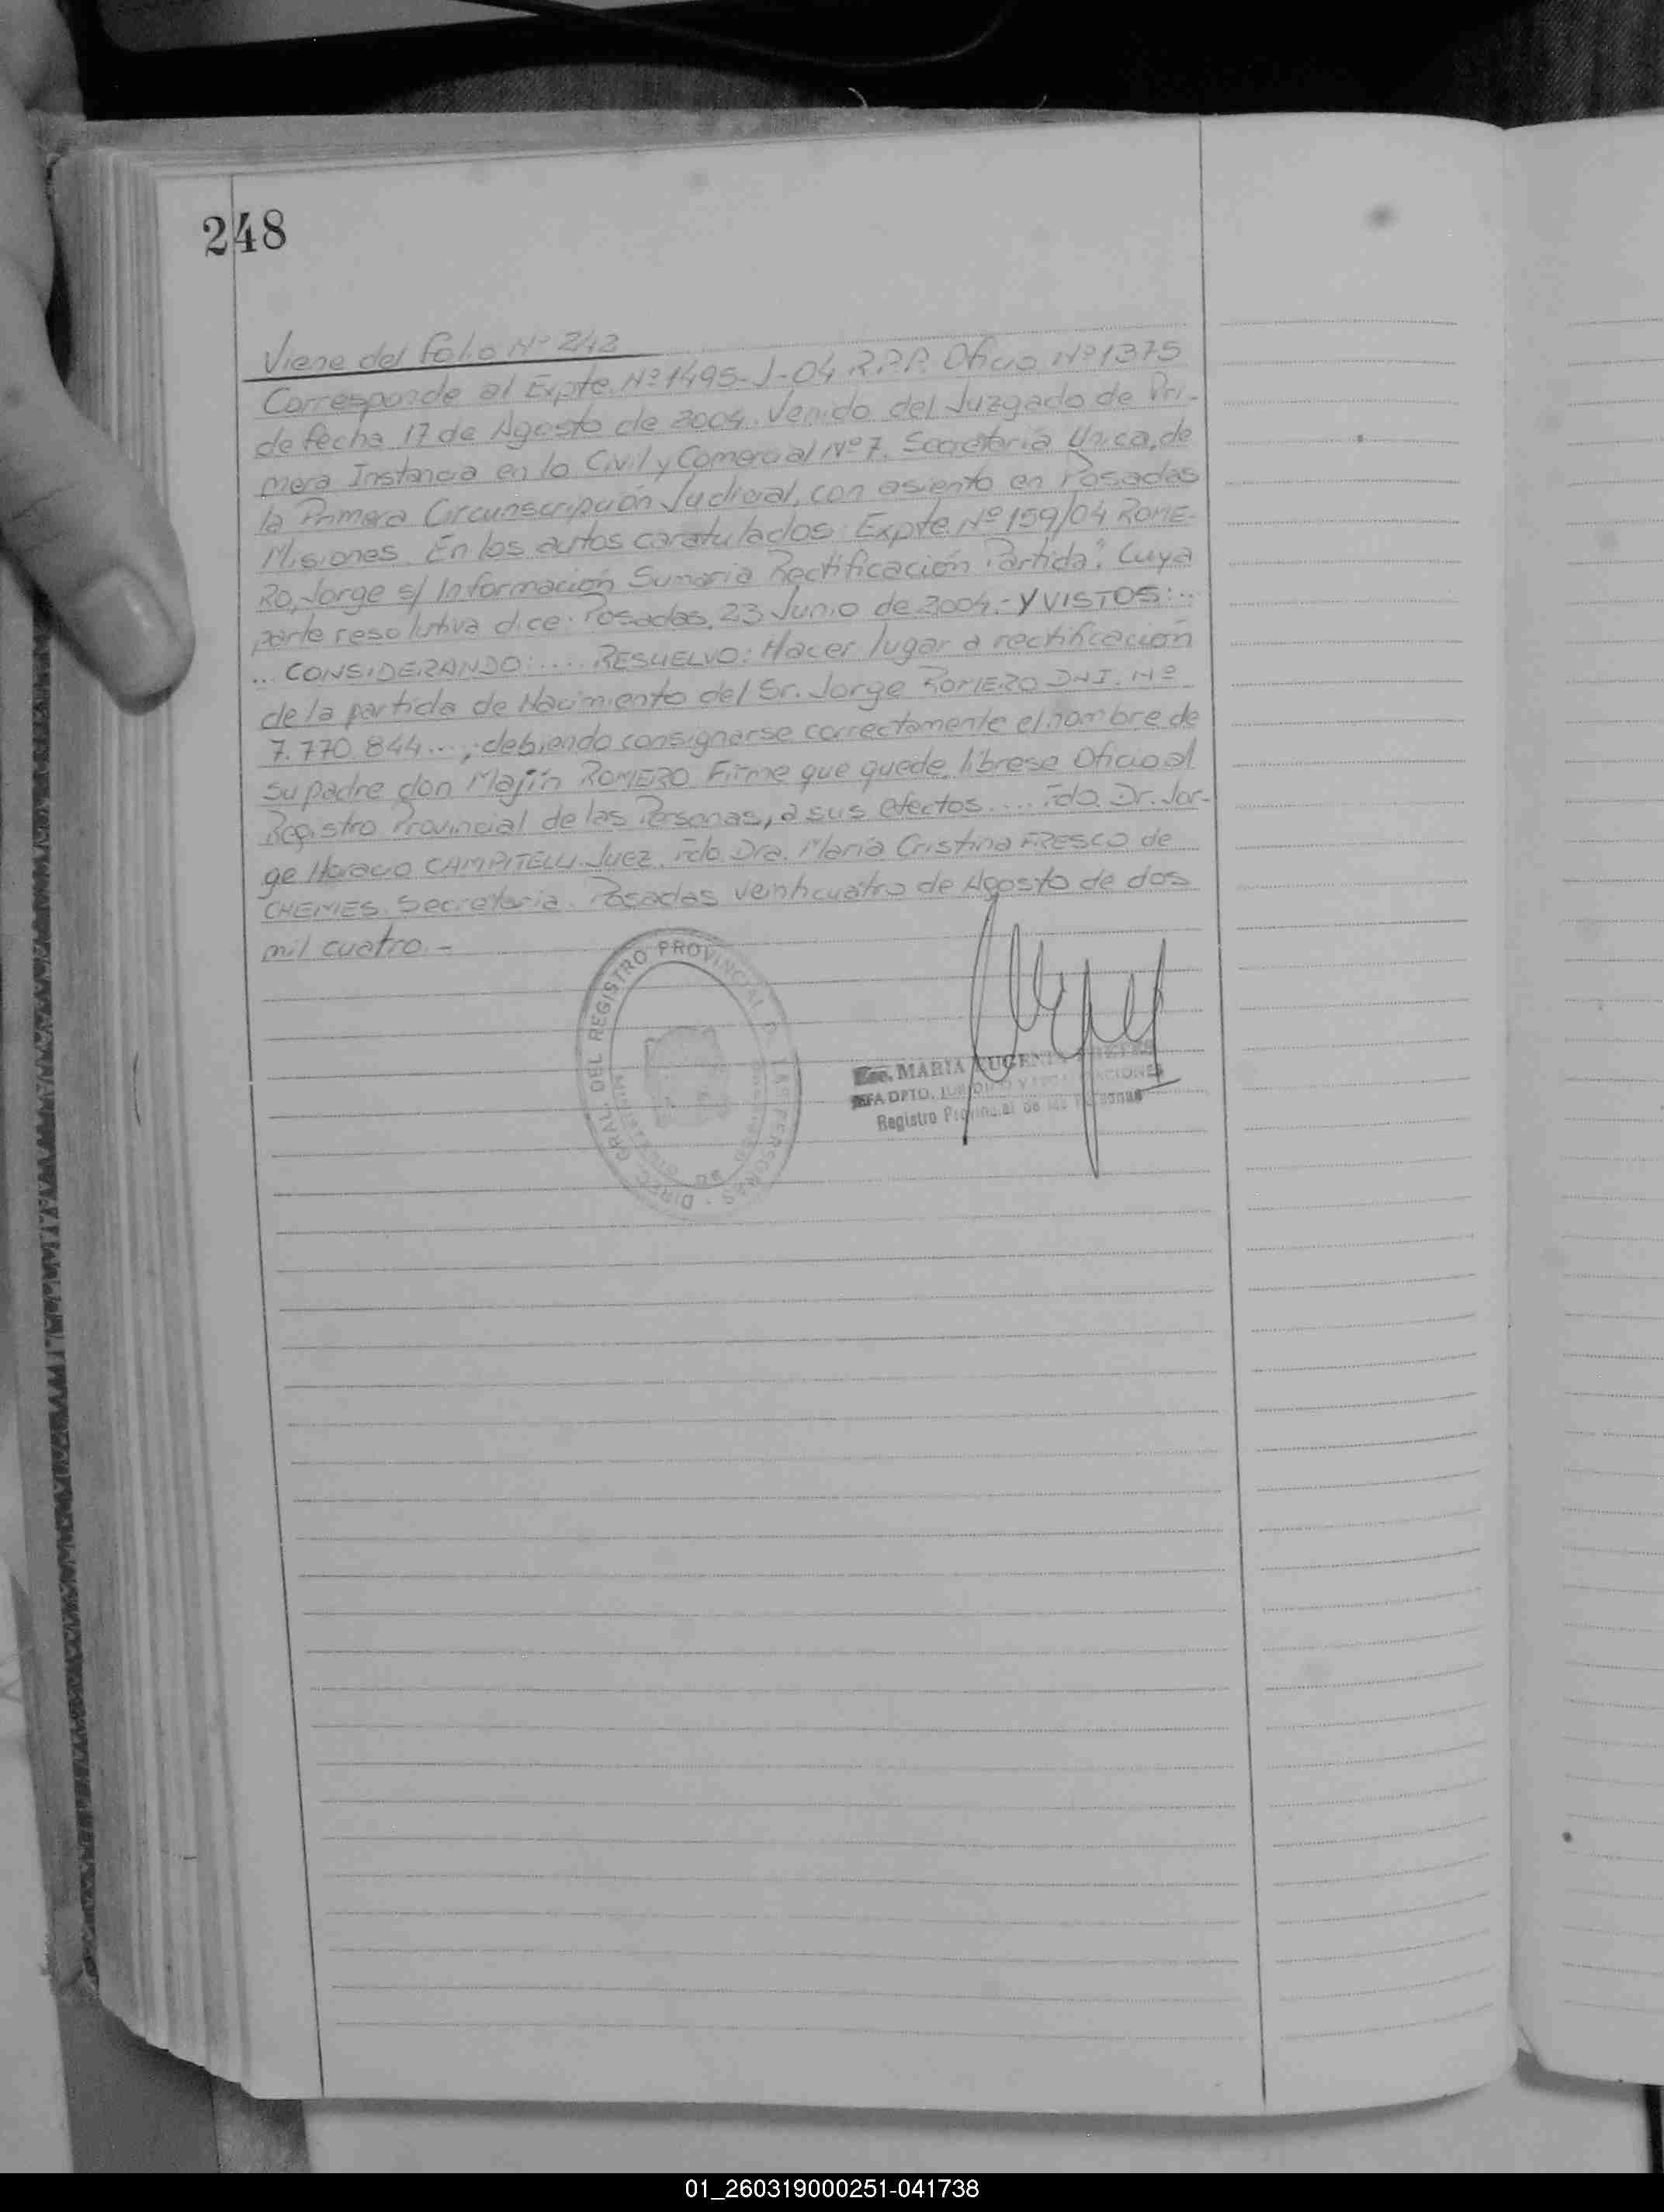 248
Viene del folio Nº 242
Corresponde al Expte. Nº 1495-J-04 R.P.P. Oficio Nº 1375
de fecha 17 de Agosto de 2004. Venido del Juzgado de Pri-
mera Instancia en lo Civil y Comercial Nº 7, Secretaria Unica, de
la Primera Circunscripción Judicial, con asiento en Posadas
Misiones. En los autos caratulados: Expte Nº 159/04 ROME-
RO, Jorge s/ Información Sumaria Rectificación Partida". Cuya
parte resolutiva dice: Posadas, 23 Junio de 2004.- Y VISTOS:..
... CONSIDERANDO:.... RESUELVO: Hacer lugar a rectificación
de la partida de Nacimiento del Sr. Jorge ROMERO DNI. Nº
7.770.844...., debiendo consignarse correctamente el nombre de
su padre don Majín ROMERO. Firme que quede, librese Oficio al
Registro Provincial de las Personas, a sus efectos.... Fdo. Dr. Jor-
ge Horacio CAMPITELLI. Juez. Fdo. Dra. Maria Cristina FRESCO de
CHEMES. Secretaria. Posadas veinticuatro de Agosto de dos
mil cuatro.-
DIREC. GRAL. DEL REGISTRO PROVINCIAL D LAS PERSONAS
MARIA EUGENIA
DPTO. JURIDICO Y
Registro Provincial de las Personas
01_260319000251-041738